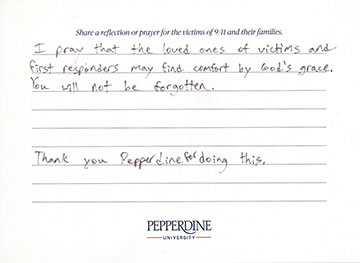 Share a reflection or prayer for the victims of 9/11 and their families.
I pray that the loved ones of victims and
first responders may find comfort by God's grace.
You will not be forgotten.
Thank you Pepperdine for doing this.
PEPPERDINE
UNIVERSITY